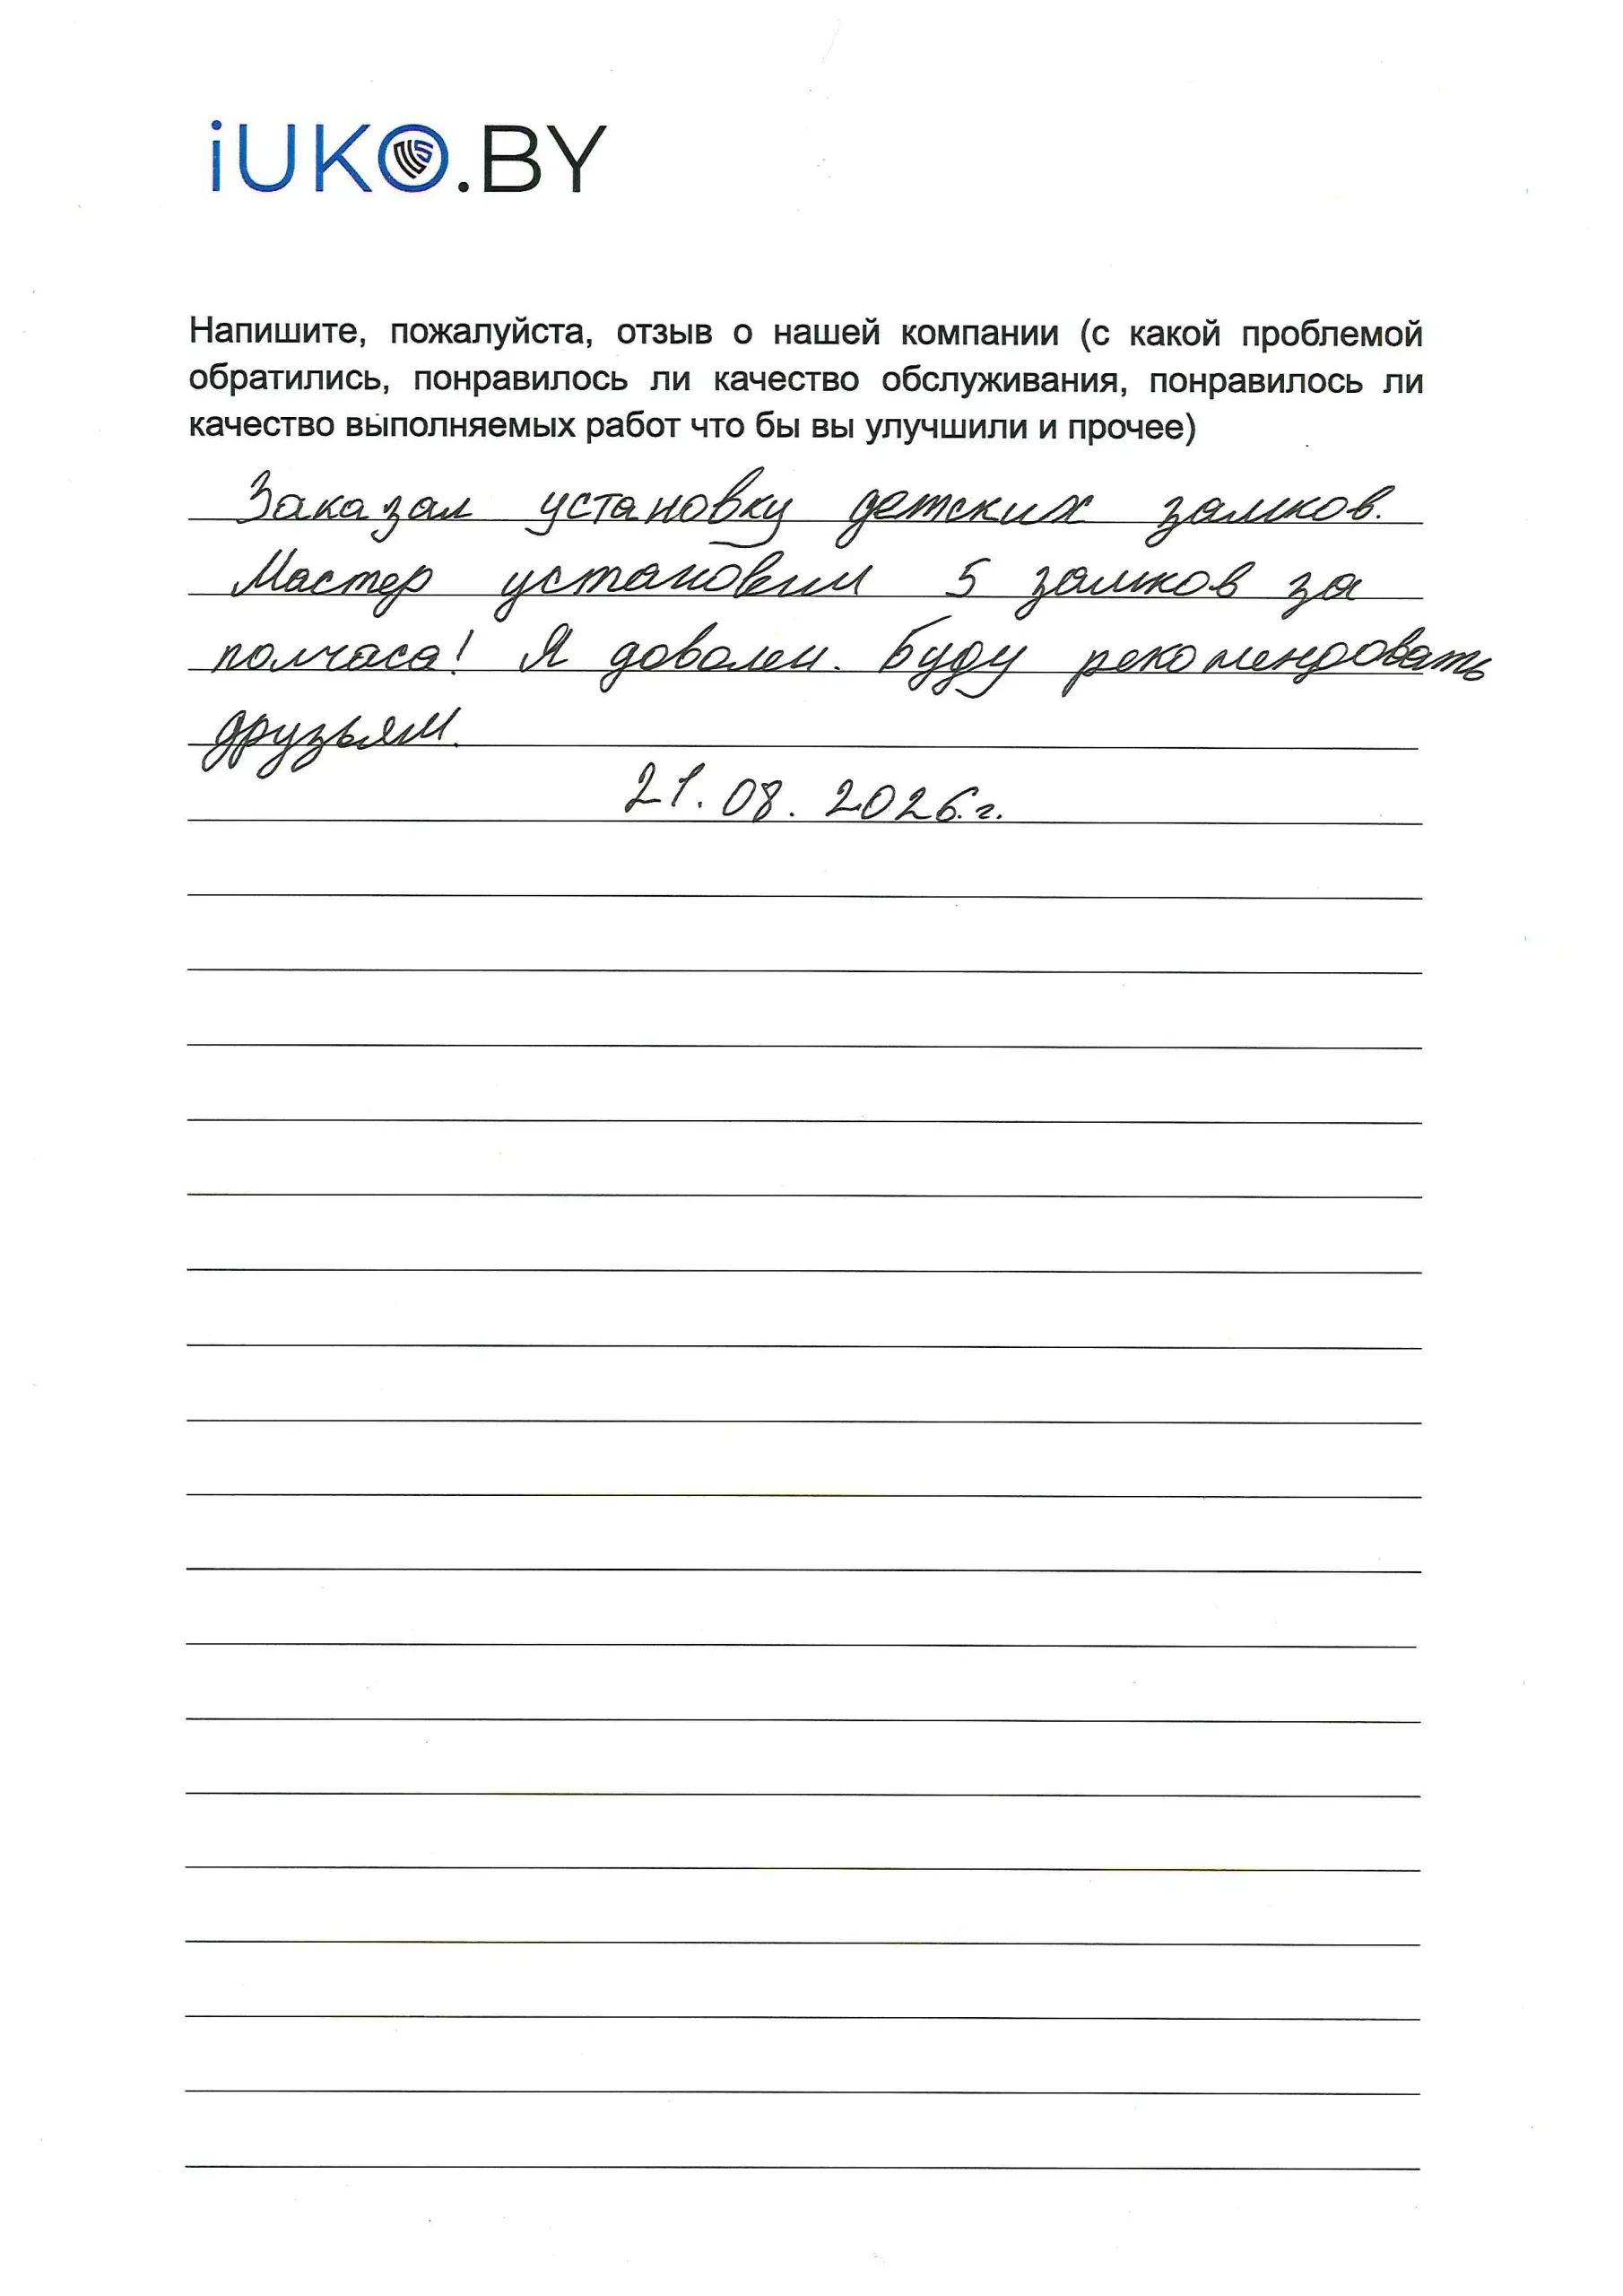 iUKO.BY
Напишите, пожалуйста, отзыв о нашей компании (с какой проблемой
обратились, понравилось ли качество обслуживания, понравилось ли
качество выполняемых работ что бы вы улучшили и прочее)
Заказал установку детских замков.
Мастер установил 5 замков за
полчаса! Я доволен. Буду рекомендовать
друзьям.
21.08.2026.г.